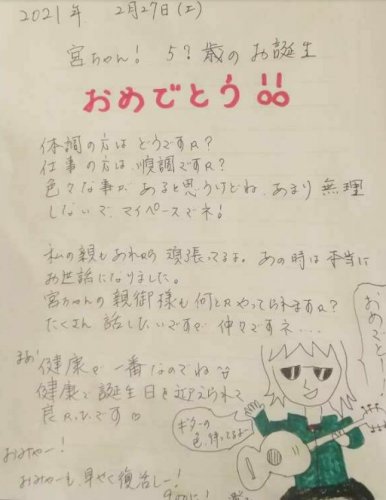 2021年 2月27日(土)
宮ちゃん! 5?歳のお誕生
おめでとう!!
体調の方はどうですか?
仕事の方は順調ですか?
色々な事があると思うけどね、あまり無理
しないで、マイペースでネ!
私の親もあれから頑張ってるよ。あの時は本当に
お世話になりました。
宮ちゃんの親御様も何とかやってられますか?
たくさん話したいですが仲々ですネ...
まあ!健康が一番なのでね
健康で誕生日を迎えられて
良かったです♡
おめでとー!
ギターの
色、待ってるよ~
おみやー!
おみやーも早く復活しー!